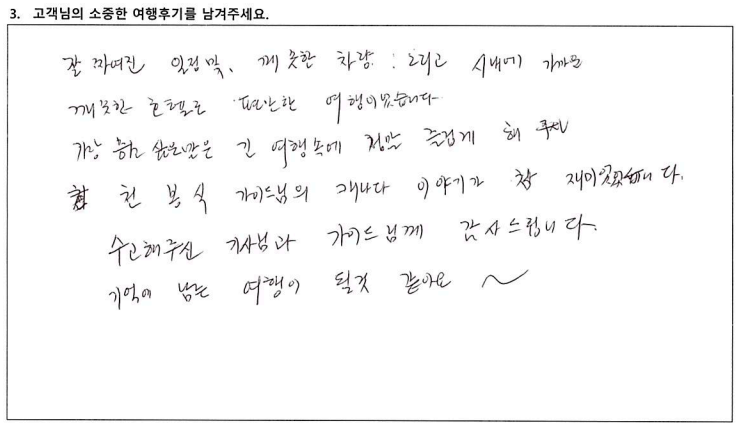 3. 고객님의 소중한 여행후기를 남겨주세요.
잘 짜여진 일정 및, 깨끗한 차량 그리고 시내에 가까운
깨끗한 호텔로 편안한 여행이었습니다
가장 좋은 많은 긴 여행속에 정말 즐겁게 해 주신
천봉식 가이드님의 캐나다 이야기가 참 재미있었습니다.
수고해주신 기사님과 가이드님께 감사드립니다.
기억에 남는 여행이 될것 같아요 ~